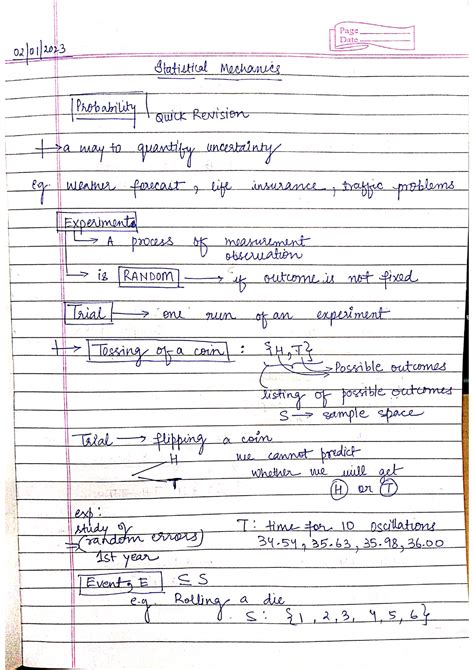 Page
Date
02/01/2023
Statistical Mechanics
Probability Quick Revision
→ a way to quantify uncertainty
eg. weather forecast, life insurance, traffic problems
Experiment
→ A process of measurement
observation
→ is RANDOM → if outcome is not fixed
Trial → one run of an experiment
→ Tossing of a coin : {H, T}
→ Possible outcomes
listing of possible outcomes
S → sample space
Trial → flipping a coin
H
T
we cannot predict
whether we will get
H or T
exp:
study of
(random errors)
1st year
T: time for 10 oscillations
34.54, 35.63, 35.98, 36.00
Event, E ⊆ S
e.g. Rolling a die
S: {1, 2, 3, 4, 5, 6}